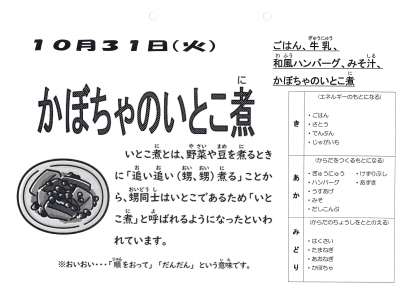 10月31日(火)
かぼちゃのいとこ煮
いとこ煮とは、野菜や豆を煮るとき
に「追い追い(甥、甥)煮る」ことか
ら、甥同士はいとこであるため「いと
こ煮」と呼ばれるようになったといわ
れています。
※おいおい・・・「順をおって」「だんだん」という意味です。
ごはん、牛乳、
和風ハンバーグ、みそ汁、
かぼちゃのいとこ煮
き
(エネルギーのもとになる)
・ごはん
・さとう
・でんぷん
・じゃがいも
あか
(からだをつくるもとになる)
・ぎゅうにゅう ・けずりぶし
・ハンバーグ ・あずき
・うすあげ
・みそ
・だしこんぶ
みどり
(からだのちょうしをととのえる)
・はくさい
・たまねぎ
・あおねぎ
・かぼちゃ